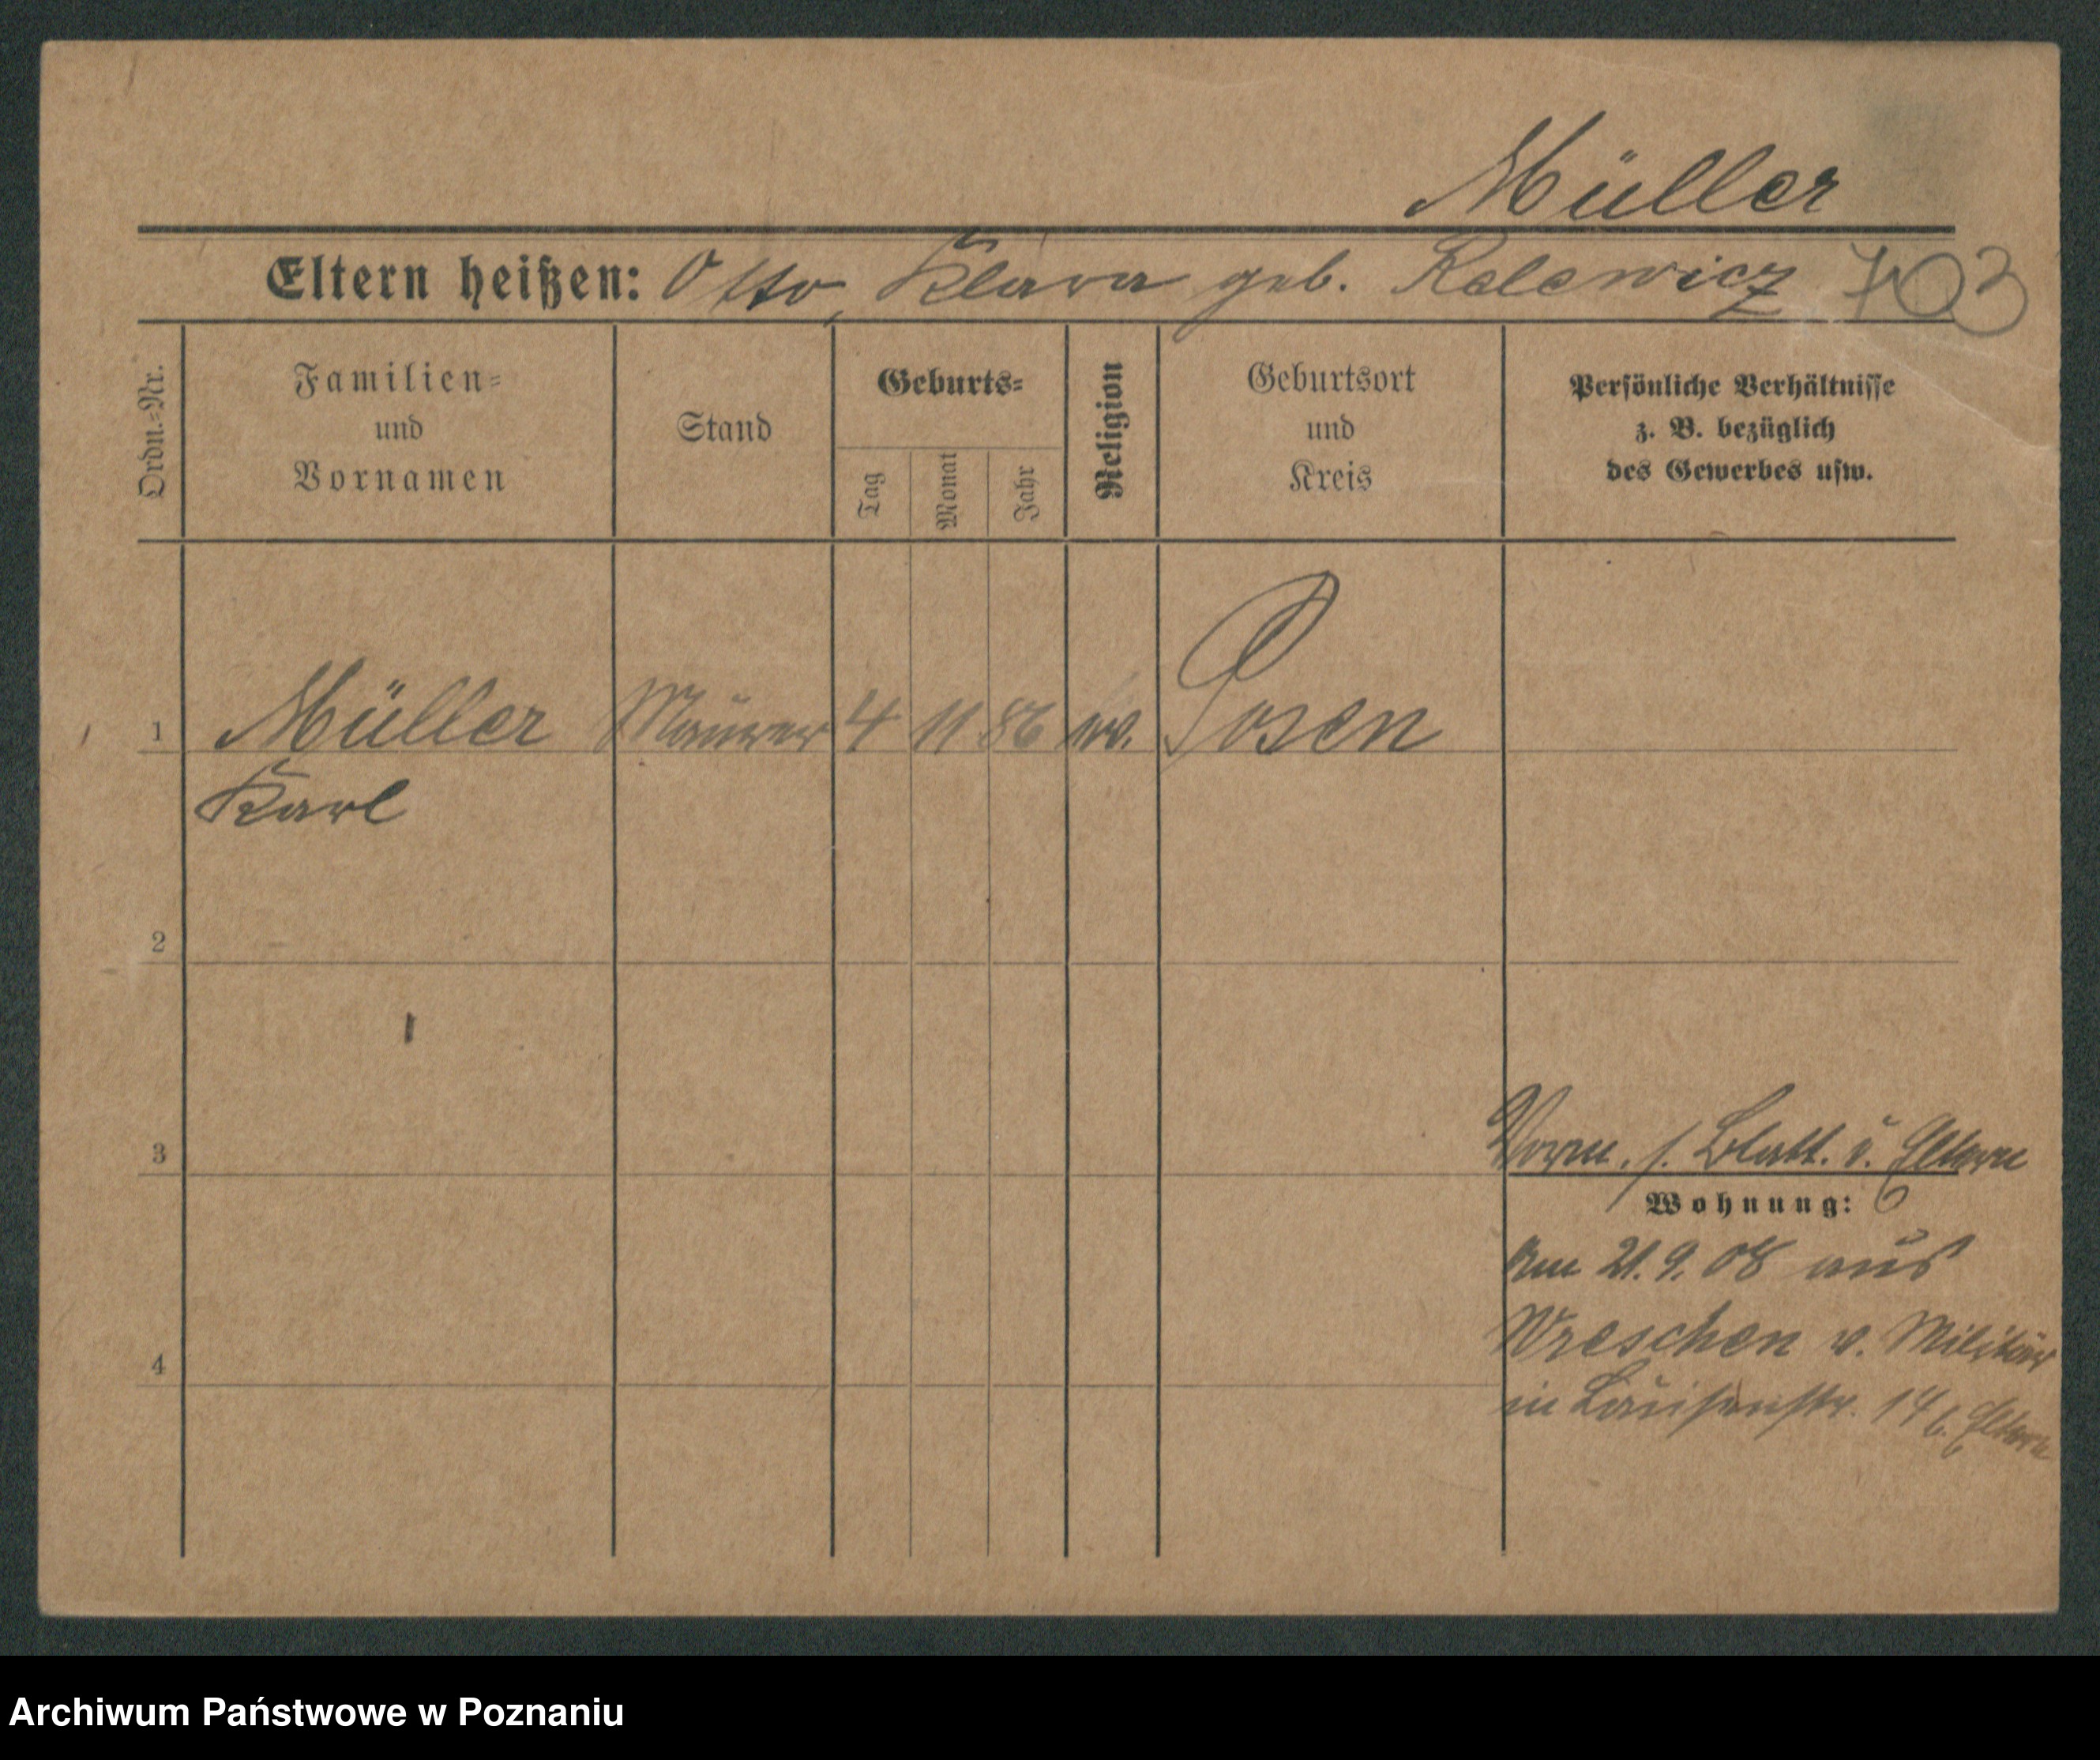 Müller
Eltern heißen: Otto, Klara geb. Ralewicz 703
Ordn.-Nr.
Familien-
und
Vornamen
Stand
Geburts-
Tag
Monat
Jahr
Religion
Geburtsort
und
Kreis
Persönliche Verhältnisse
z. B. bezüglich
des Gewerbes usw.
1 Müller Maurer 4 11 86 ev. Posen
Karl
2
3
Vorm. s. Blatt. d. Eltern
Wohnung:
Am 21.9.08 aus
4
Wreschen v. Militär
in Louisenstr. 14 b. Eltern
Archiwum Państwowe w Poznaniu